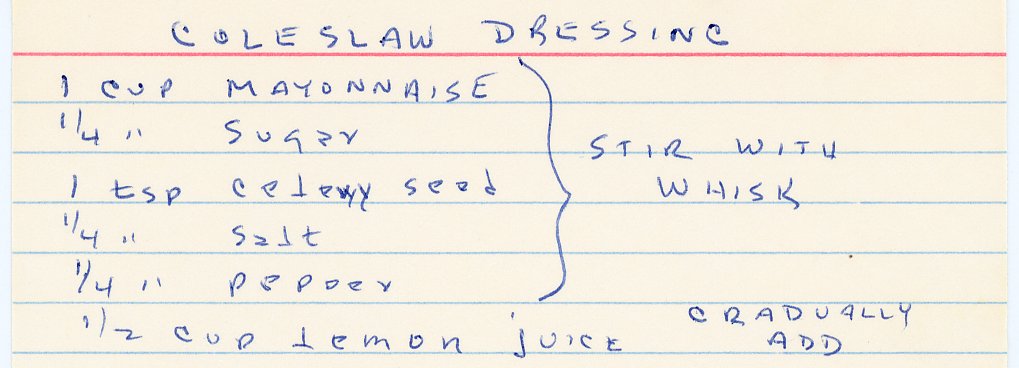 COLESLAW DRESSING
1 CUP MAYONNAISE
1/4 " SUGAR
1 tsp celery seed
STIR WITH
WHISK
1/4 " salt
1/4 " pepper
1/2 cup lemon juice
GRADUALLY
ADD